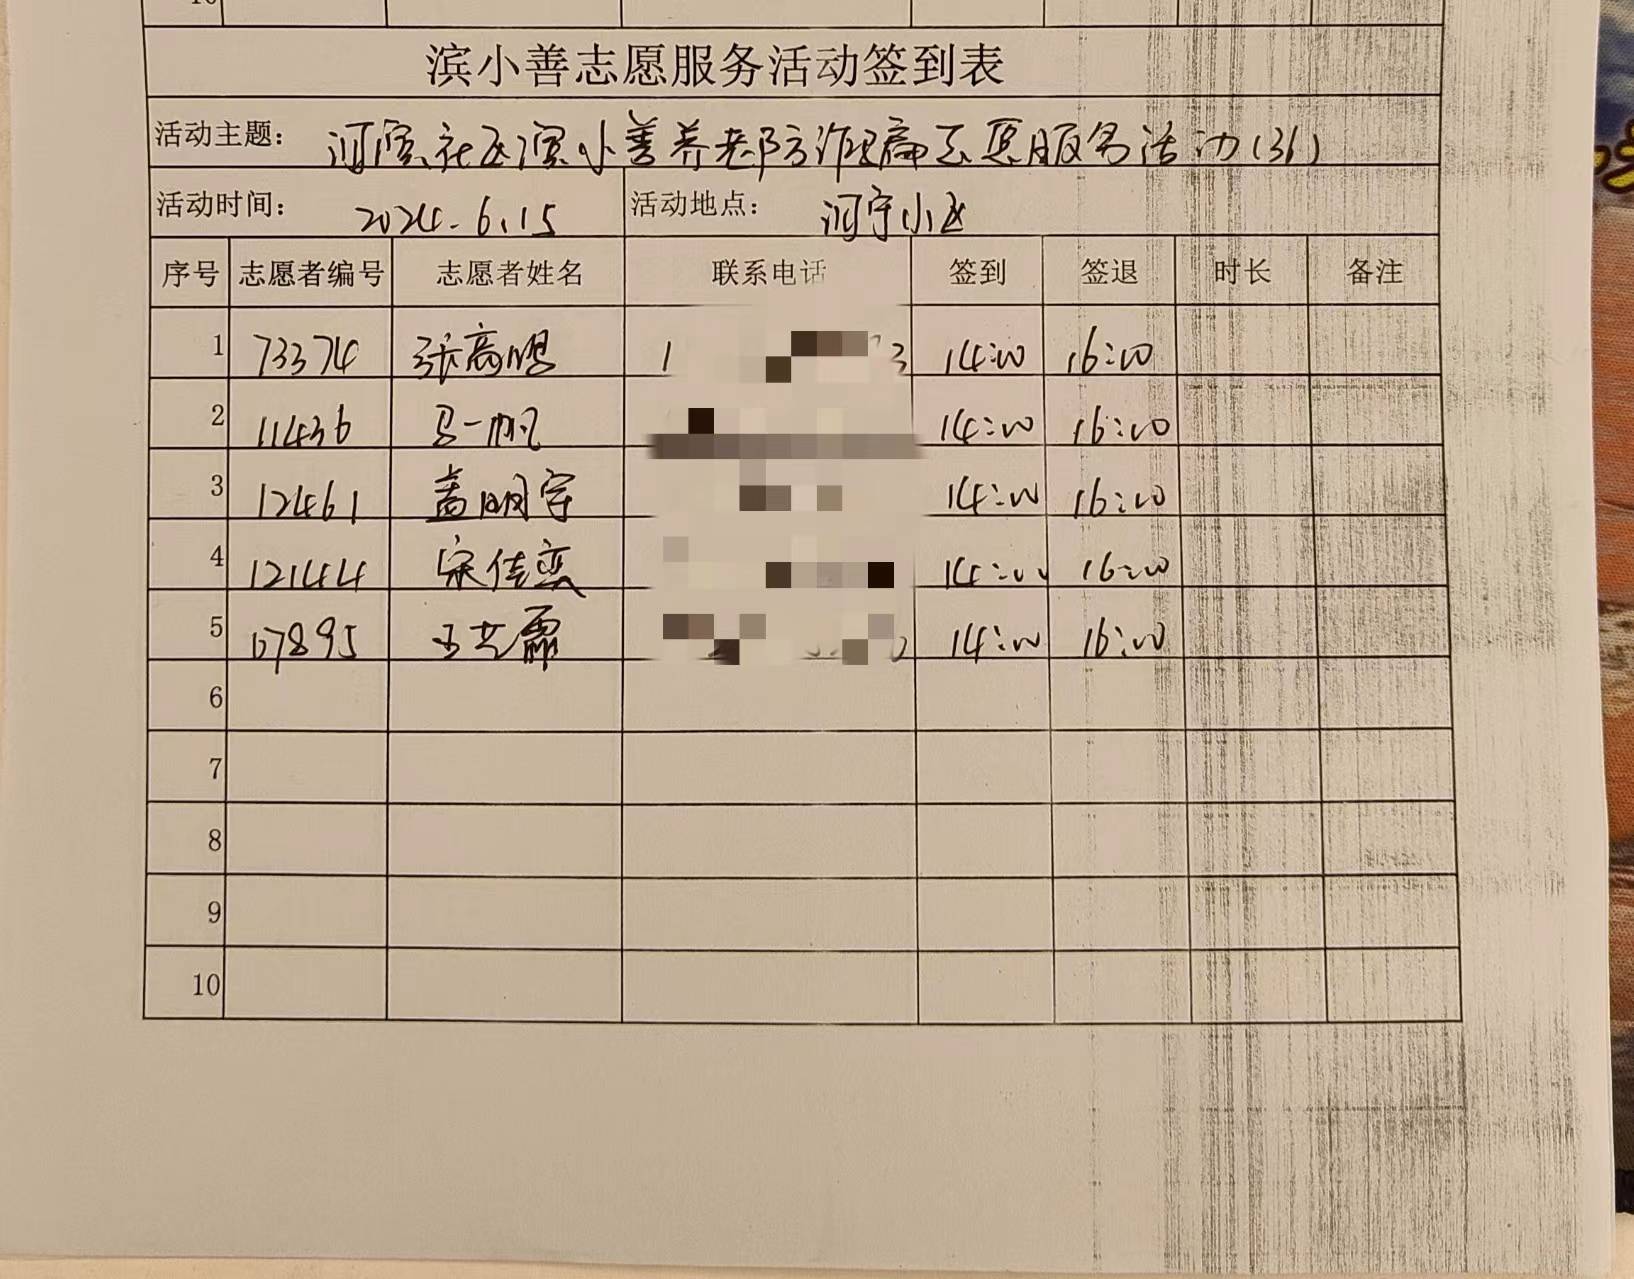 滨小善志愿服务活动签到表
活动主题: 河滨社区滨小善养老防诈骗志愿服务活动(36)
活动时间: 2024.6.15 活动地点: 河宁小区
序号 志愿者编号 志愿者姓名 联系电话 签到 签退 时长 备注
1 73374 张高 14:00 16:00
2 11436 马一帆 14:00 16:00
3 12461 盖明宇 14:00 16:00
4 12144 宋佳奕 14:00 16:00
5 07895 王艺霏 14:00 16:00
6
7
8
9
10